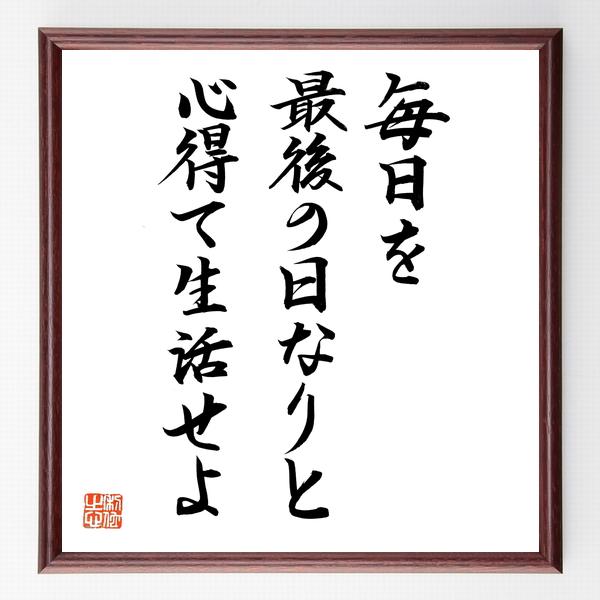 毎日を
最後の日なりと
心得て生活せよ